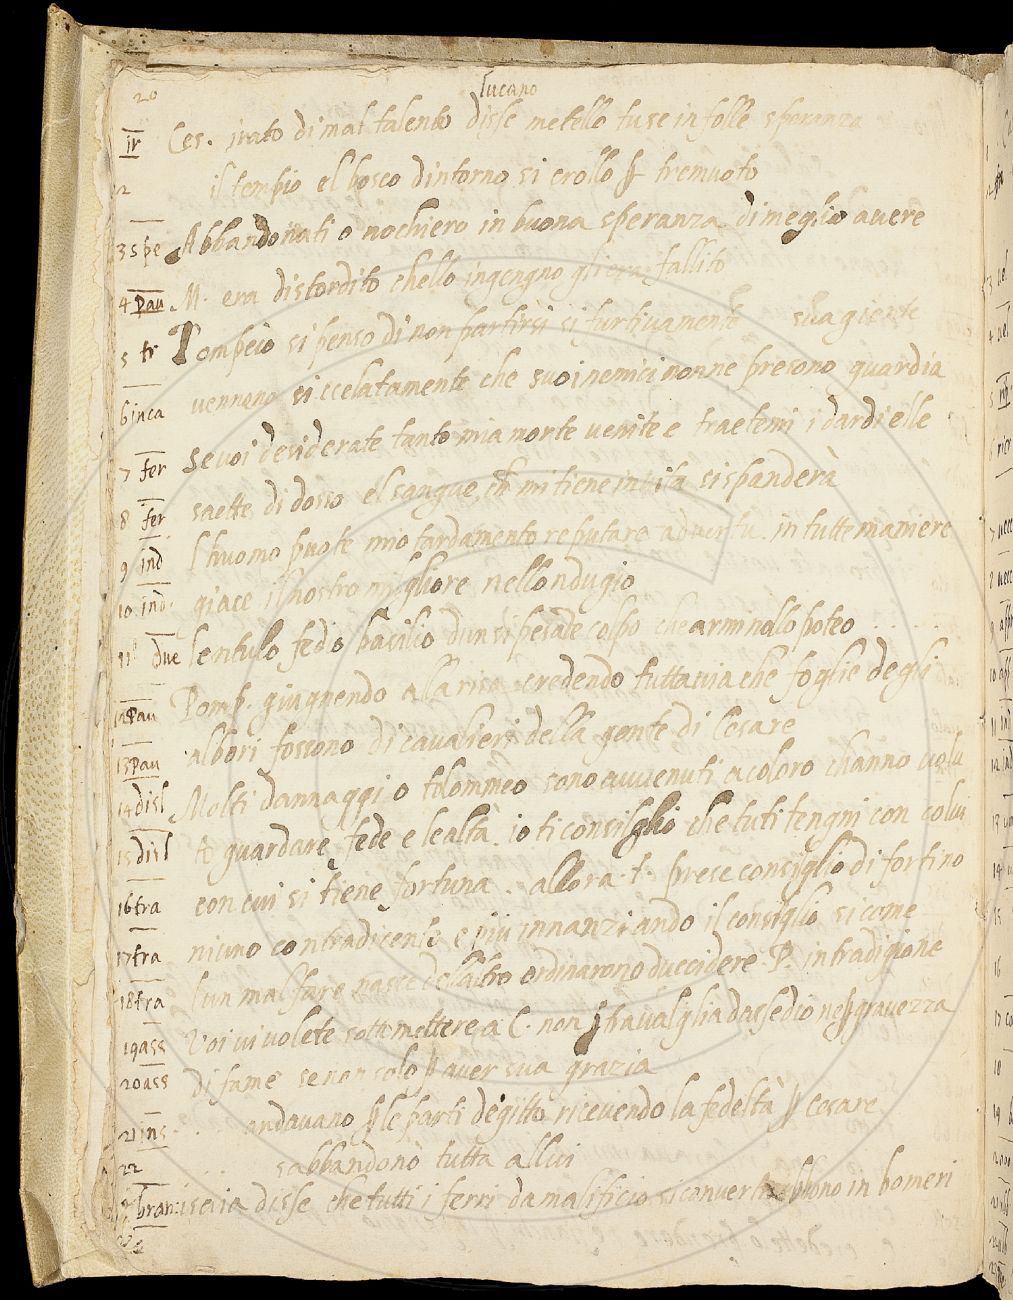 20
lucano
1 ir Ces. irato di mal talento disse metello tu se in folle speranza
2 il tempio el bosco dintorno si crollo ꝑ tremuoto
3 spe Abbandonati o nochiero in buona speranza di meglio avere
4 pau M. era distordito chello ingengno gli era fallito
5 tr Pompeio si penso di non partirsi si furtivamente sua giente
6 inca vennono si ccelatamente che suoi nemici nonne presono guardia
7 fer Se voi desiderate tanto mia morte venite e traetemi i dardi elle
8 fer saette di dosso el sangue, che mi tiene in vita si spanderà
9 ind l huomo puote mio tardamento reputare a in tutte maniere
10 ind. giace il nostro migliore nello ndugio
11 due lentulo fedo basilio dun si pesate colpo che arm nollo poteo . . . .
12 pau Pomp. giugnendo alla riva credendo tuttavia che foglie degli
13 pau albori fossono di cavalieri della gente di Cesare
14 disl Molti dannaggi o tolommeo sono avvenuti a coloro channo volu
15 disl to guardare fede e lealtà. io ti consilglio che tu ti tengni con colui
16 tra con cui si tiene fortuna. allora .t. prese consiglio di fortino
17 tra niuno contradicente e più innanzi ando il consiglio si come
18 tra lun mal fare nasce dellaltro ordinarono duccidere .P. in tradigione
19 ass Voi vi volete sottomettere a C. non ꝑ travalglia dassedio ne ꝑ gravezza
20 ass di fame se non solo ꝑ aver sua grazia
21 ins . . . andavano ꝑ le parti degitto ricevendo la fedeltà ꝑ cesare
22 . . . sabbandonò tutta allui
bran: iseia disse che tutti i ferri da malificio si convertirebbono in bomeri